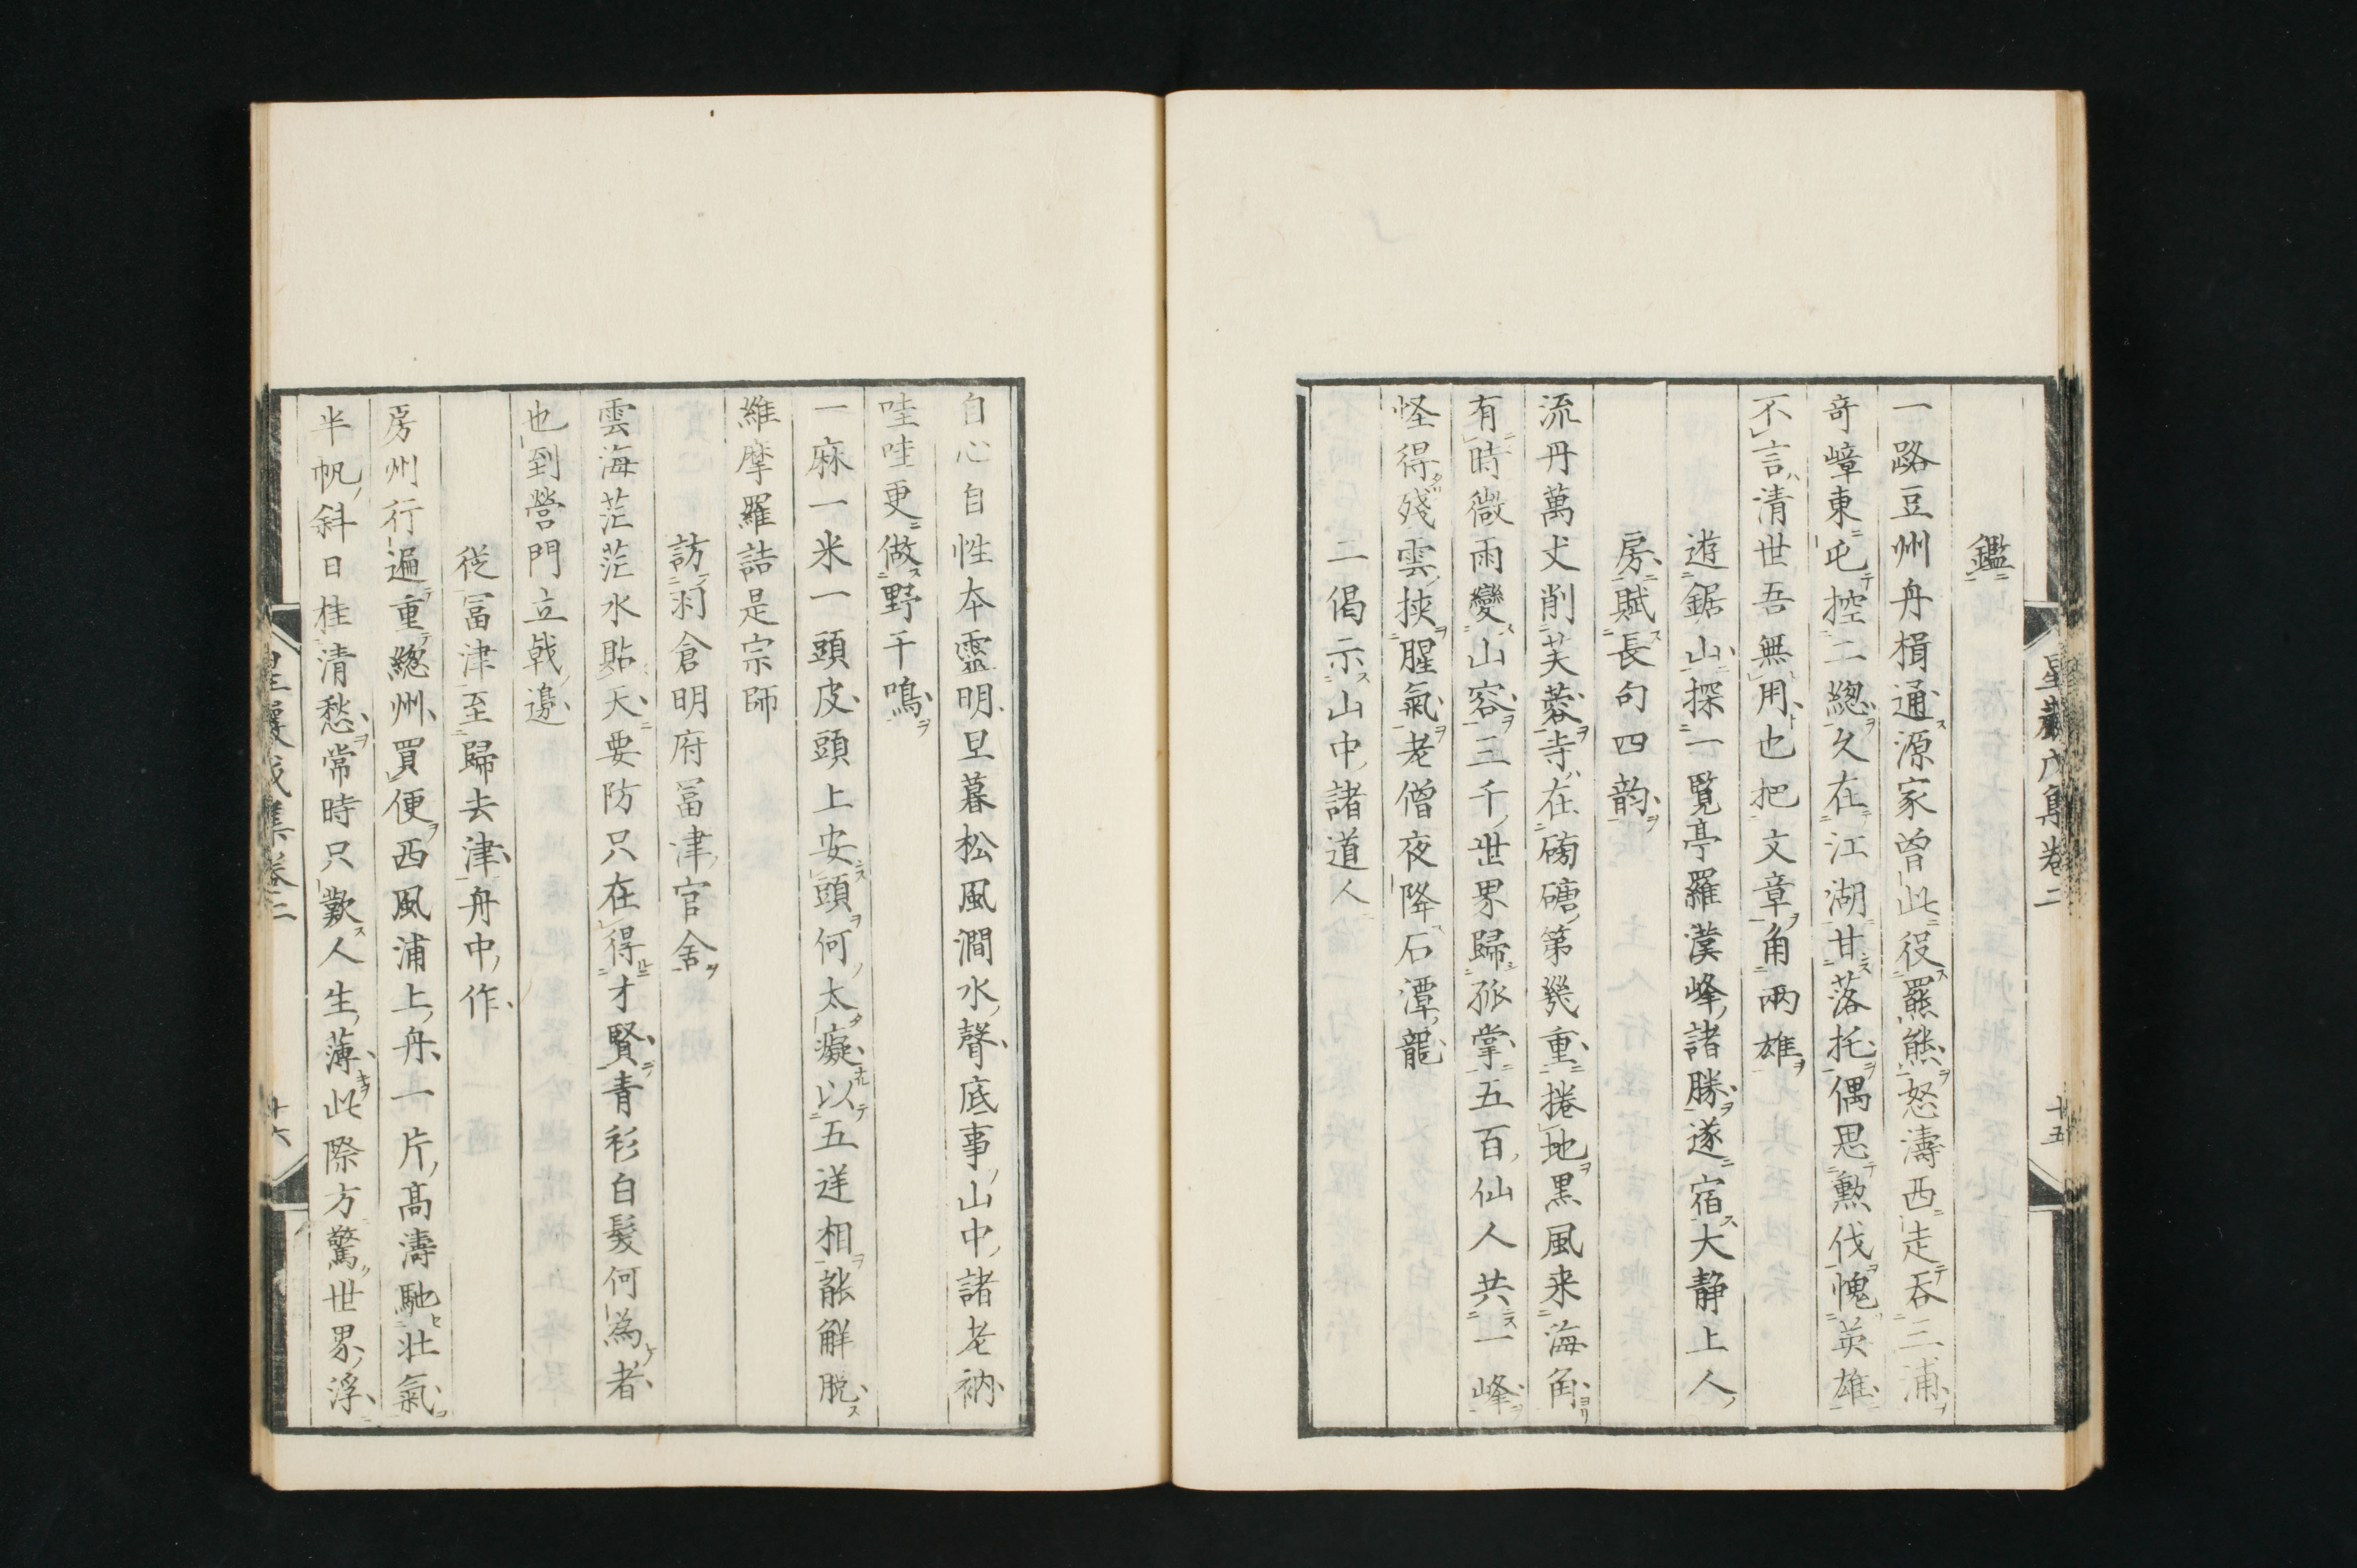 鑑
一路豆州舟楫通源家曾此役羆熊怒濤西走吞三浦
奇嶂東屯控二總久在江湖甘落托偶思勲伐愧英雄
不言清世吾無用也把文章角兩雄
遊鋸山探一覧亭羅漢峰諸勝遂宿大静上人
房賦長句四韵
流丹萬丈削芙蓉寺在磅礴第幾重捲地黒風来海角
有時微雨變山容三千世界歸孤掌五百仙人共一峰
怪得殘雲挾腥氣老僧夜降石潭龍
二偈示山中諸道人
星巖戊集卷二
十五
自心自性本靈明旦暮松風澗水聲底事山中諸老衲
哇哇更做野干鳴
一麻一米一頭皮頭上安頭何太癡以五逆相能解脱
維摩羅詰是宗師
訪羽倉明府冨津官舍
雲海茫茫水貼天要防只在得才賢青衫白髮何為者
也到營門立戟邊
從冨津至歸去津舟中作
房州行遍重總州買便西風浦上舟一片高濤馳壯氣
半帆斜日桂清愁常時只歎人生薄此際方驚世界浮
星巖戊集卷二
十六